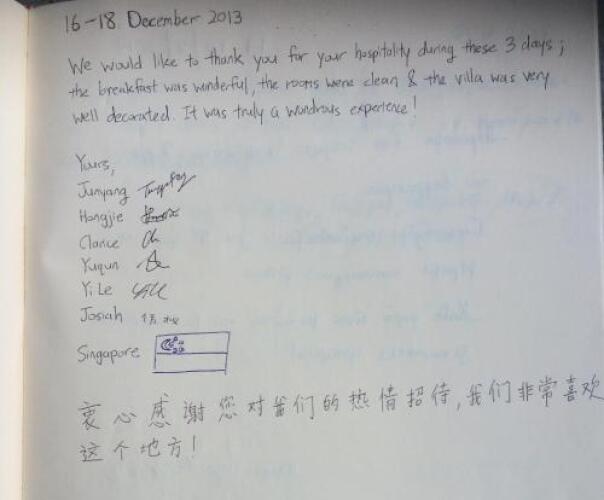 16-18 December 2013
We would like to thank you for your hospitality during these 3 days;
the breakfast was wonderful, the rooms were clean & the villa was very
well decorated. It was truly a wondrous experience!
Yours,
Junyang
Hongjie
Clance
Yuqun
Yi Le
Josiah
Singapore
衷心感谢您对我们的热情招待,我们非常喜欢
这个地方!